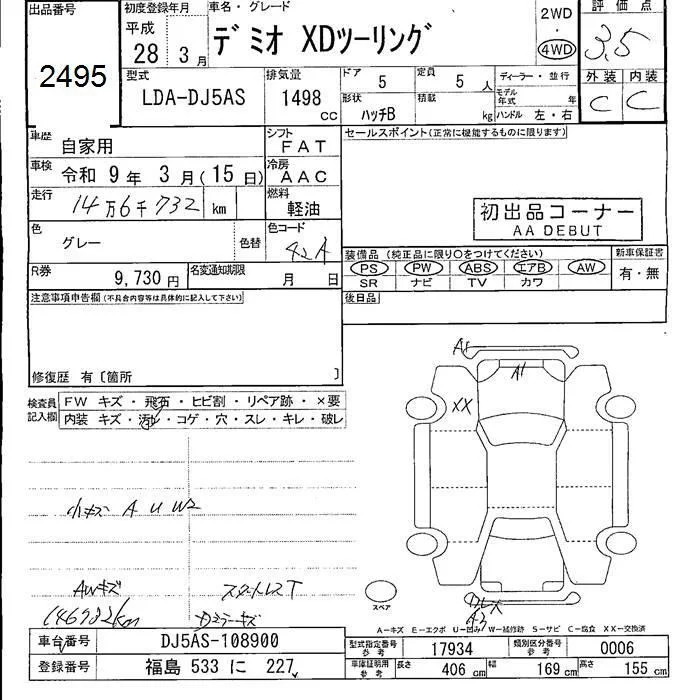 出品番号
2495
初度登録年月
平成
28 3 月
車名・グレード
デミオ XDツーリング
2WD
・
4WD
評価点
3.5
外装 内装
C C
型式
LDA-DJ5AS
排気量
1498
cc
ドア
5
定員
5 人
ディーラー・並行
形状
ハッチB
積載
kg
モデル年式
年
ハンドル 左・右
車歴
自家用
シフト
FAT
セールスポイント(正常に機能するものに限ります)
車検
令和 9年 3月(15日)
冷房
AAC
走行
14万6千732 km
燃料
軽油
初出品コーナー
AA DEBUT
色
グレー
色替
色コード
42A
装備品 (純正品に限り○をつけてください)
PS PW ABS エアB AW
SR ナビ TV カワ
新車保証書
有・無
R券
9,730 円
名変通知期限
月 日
後日品
注意事項申告欄(不具合内容等は具体的に記入して下さい)
修復歴 有〔箇所 〕
検査員
記入欄
FW キズ・飛石・ヒビ割・リペア跡・×要
内装 キズ・汚れ・コゲ・穴・スレ・キレ・破レ
A1
A1
XX
小キズ A U W2
AWキズ
スタットレスT
146732km
Dミラーキズ
スペア
A3
A-キズ E-エクボ U-凹み W-補修跡 S-サビ C-腐食 XX-交換済
車台番号
DJ5AS-108900
登録番号
福島 533 に 227
型式指定番号
参考
17934
類別区分番号
参考
0006
車庫証明用
参考
長さ
406 cm
幅
169 cm
高さ
155 cm